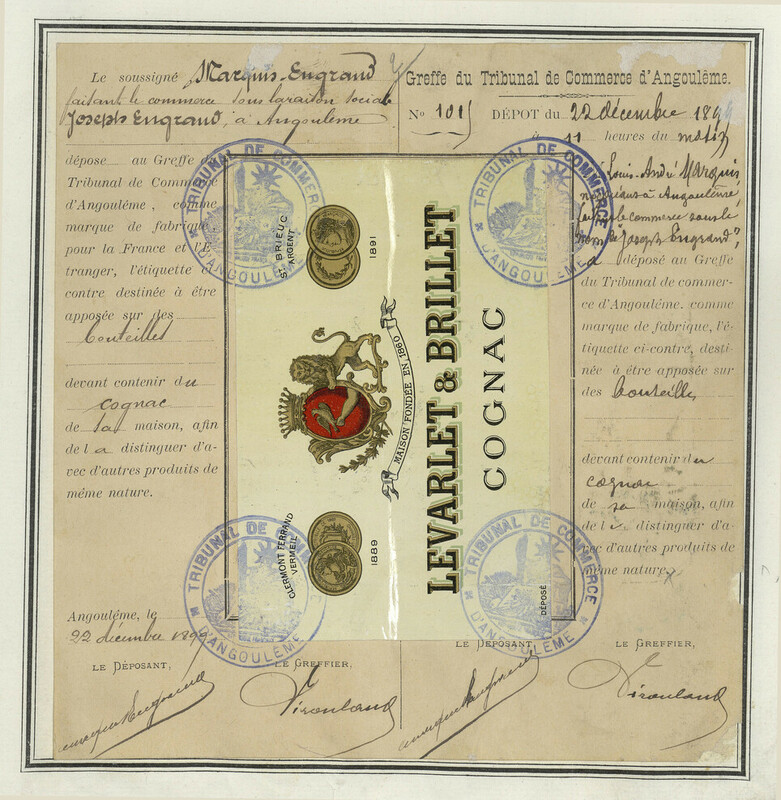 Le soussigné Marquis-Engrand
faisant le commerce sous la raison sociale
Joseph Engrand, à Angoulême
dépose au Greffe du
Tribunal de Commerce
d'Angoulême, comme
marque de fabrique,
pour la France et l'É-
tranger, l'étiquette ci-
contre destinée à être
apposée sur des
bouteilles
devant contenir du
cognac
de sa maison, afin
de la distinguer d'a-
vec d'autres produits de
même nature.
Angoulême, le
22 décembre 1899
LE DÉPOSANT,
LE GREFFIER,
TRIBUNAL DE COMMERCE
D'ANGOULÊME
ST BRIEUC
ARGENT
1891
MAISON FONDÉE EN 1860
LEVARLET & BRILLET
COGNAC
CLERMONT FERRAND
VERMEIL
1889
DÉPOSÉ
TRIBUNAL DE COMMERCE
D'ANGOULÊME
TRIBUNAL DE COMMERCE
D'ANGOULÊME
TRIBUNAL DE COMMERCE
D'ANGOULÊME
Greffe du Tribunal de Commerce d'Angoulême.
No 101 DÉPOT du 22 décembre 1899
à 11 heures du matin
Louis-André Marquis,
négociant à Angoulême,
le commerce sous le
nom de "Joseph Engrand",
a déposé au Greffe
du Tribunal de commer-
ce d'Angoulême. comme
marque de fabrique, l'é-
tiquette ci-contre, desti-
née à être apposée sur
des bouteilles
devant contenir du
cognac
de sa maison, afin
de la distinguer d'a-
vec d'autres produits de
même nature.
LE DÉPOSANT,
LE GREFFIER,